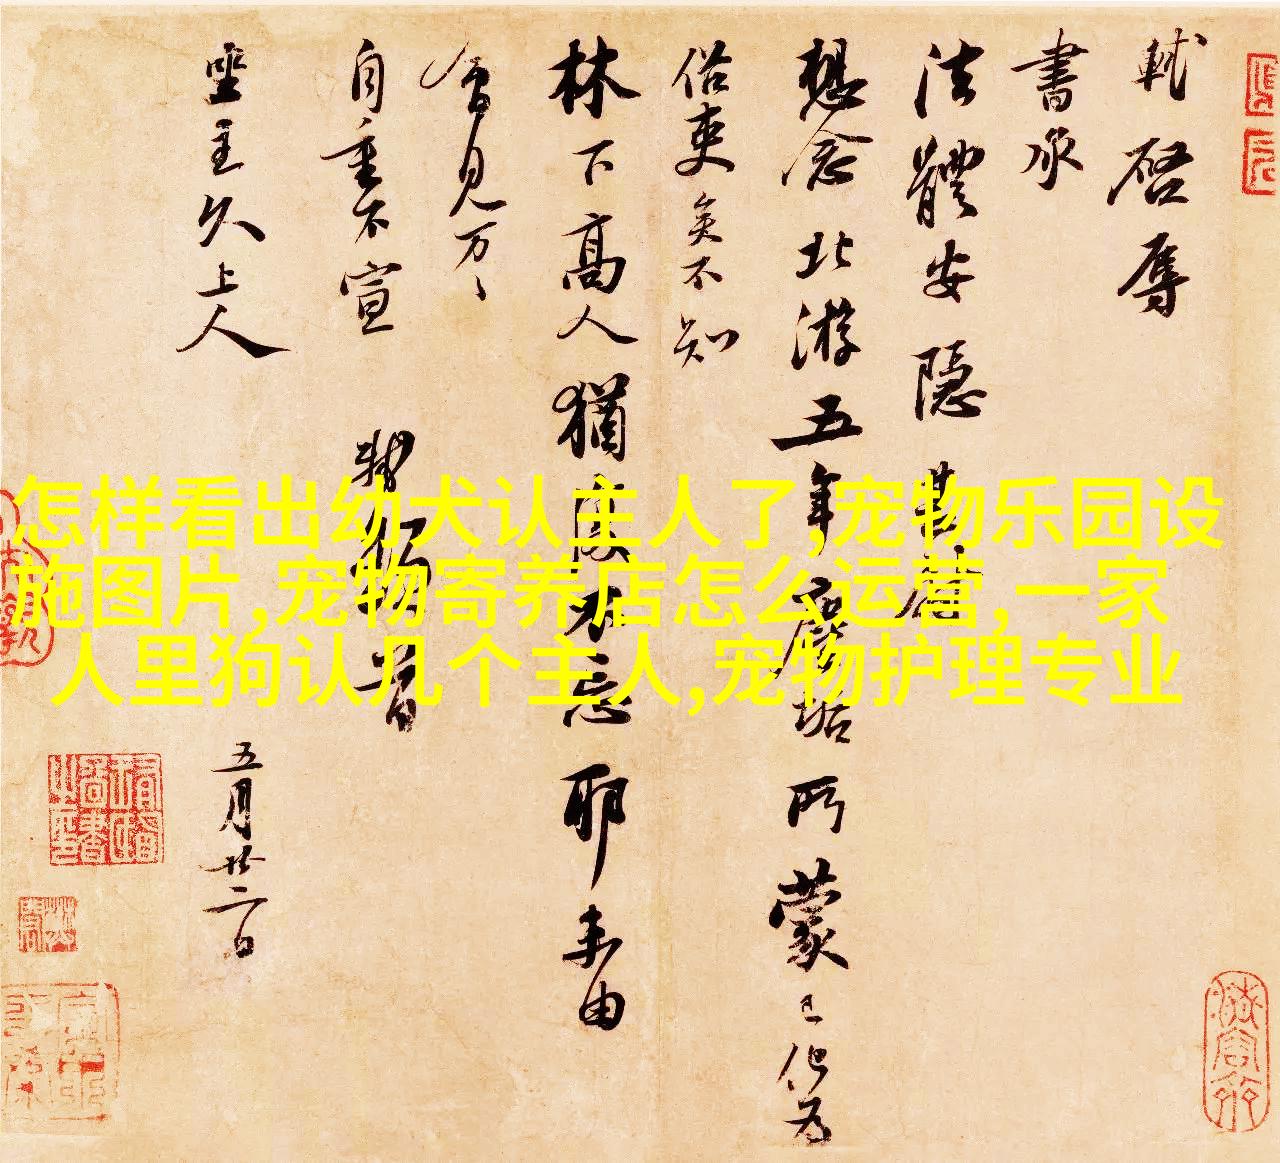 軾啓辱
書承
法體安隱甚慰
想念北游五年塵垢所蒙已化為
俗吏矣不知
林下高人猶復不忘耶未由
會見万〻
自重不宣 軾頓首
坐主久上人
五月廿二日
怎样看出幼犬认主人了,宠物乐园设
施图片,宠物寄养店怎么运营,一家
人里狗认几个主人,宠物护理专业